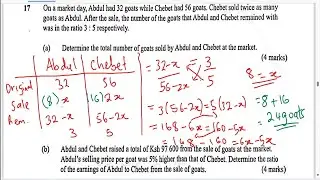 17 On a market day, Abdul had 32 goats while Chebet had 56 goats. Chebet sold twice as many
goats as Abdul. After the sale, the number of the goats that Abdul and Chebet remained with
was in the ratio 3 : 5 respectively.
(a) Determine the total number of goats sold by Abdul and Chebet at the market.
(4 marks)
Abdul Chebet
Original 32 56
Sale (8) x (16) 2x
Rem. 32-x 56-2x
3 5
= 32-x / 56-2x = 3/5
3(56-2x) = 5(32-x)
= 168-6x = 160-5x
= 168-160 = 6x-5x
8 = x
= 8 + 16
= 24 goats
(b) Abdul and Chebet raised a total of Ksh 97 600 from the sale of goats at the market.
Abdul's selling price per goat was 5% higher than that of Chebet. Determine the ratio
of the earnings of Abdul to Chebet from the sale of goats.
(4 marks)